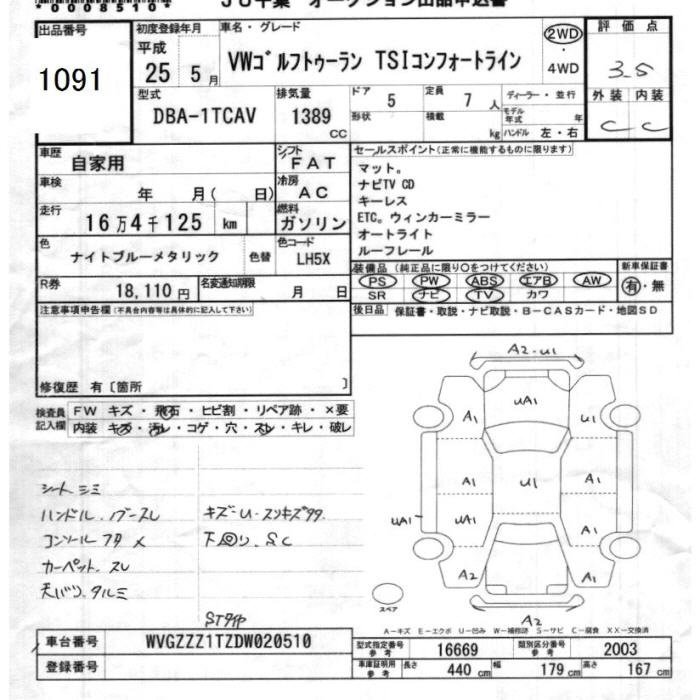 *0008510*
JU千葉 オークション出品申込書
出品番号
1091
初度登録年月
平成
25 5月
車名・グレード
VWゴルフトゥーラン TSIコンフォートライン
2WD
4WD
評価点
3.5
外装 内装
C C
型式
DBA-1TCAV
排気量
1389
CC
ドア
5
形状
定員
7 人
積載
kg
ディーラー・並行
モデル年式 年
ハンドル 左・右
車歴
自家用
シフト
FAT
車検
年 月( 日)
冷房
AC
走行
16万4千125 km
燃料
ガソリン
色
ナイトブルーメタリック
色替
色コード
LH5X
R券
18,110円
名変通知期限
月 日
セールスポイント(正常に機能するものに限ります)
マット。
ナビTV CD
キーレス
ETC。ウィンカーミラー
オートライト
ルーフレール
装備品 (純正品に限り○をつけてください)
PS PW ABS エアB AW
SR ナビ TV カワ
新車保証書
有・無
後日品 保証書・取説・ナビ取説・B-CASカード・地図SD
注意事項申告欄(不具合内容等は具体的に記入して下さい)
修復歴 有〔箇所 〕
検査員記入欄
FW キズ・飛石・ヒビ割・リペア跡・×要
内装 キズ・汚レ・コゲ・穴・スレ・キレ・破レ
シート シミ
ハンドル.
コンソールフタ ×
カーペット. スレ
天バリ. タルミ
キズ-U-スリキズ
下回り. SC
STタイヤ
A2-U1
UA1
A1
U1
A1
U1
A1
UA1
UA1
A1
A2
A1
A2
スペア
A-キズ E-エクボ U-凹み W-補修跡 S-サビ C-腐食 XX-交換済
車台番号
WVGZZZ1TZDW020510
登録番号
型式指定番号
参考
16669
類別区分番号
参考
2003
車庫証明用
参考
長さ 440 cm
幅 179 cm
高さ 167 cm